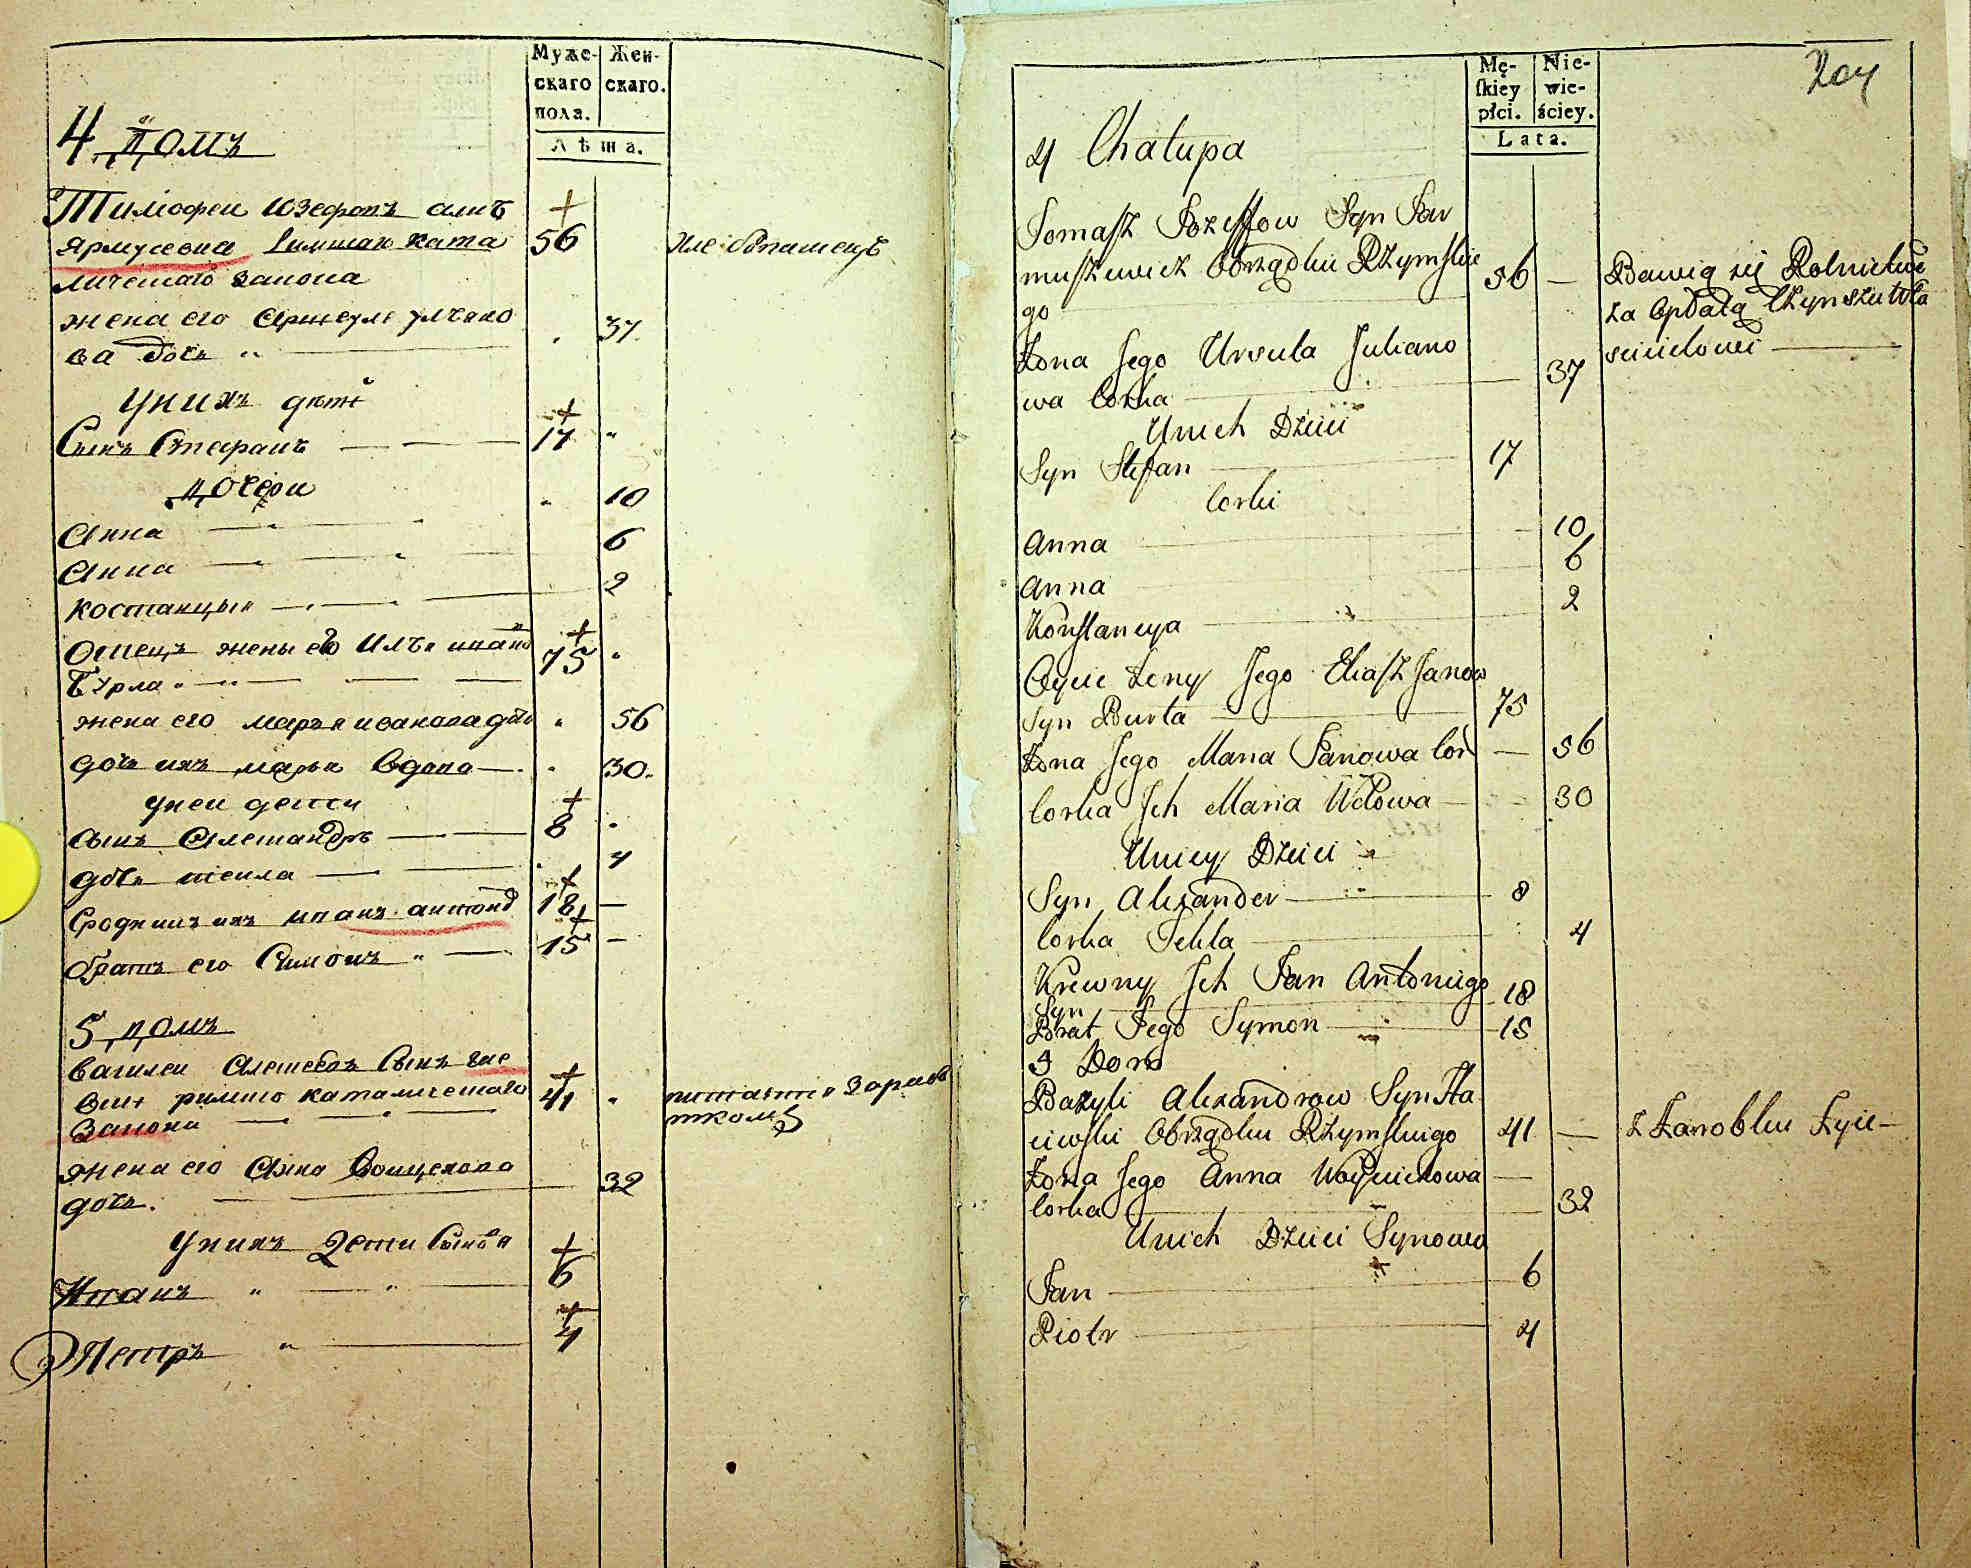 Муже-
скаго
пола.
Жен-
скаго.
Лѣта.
4 Домъ
Тимофеи Юзефовъ сынъ
Ярмусевиа Римшаго ката
личешаго закона
56
жена его Аршеула улѣяно
ва дочь
37.
У нихъ дети
Сынъ Стефанъ
17
дочери
Анна
10
Анна
6
Костанцыя
2
Отецъ жены его Илья ивано
Бурла
75
жена его марья иванова дочь
56
дочь ихъ марья вдова
30.
у неи дети
сынъ Александръ
8
дочь текла
4
Сродникъ ихъ иванъ антоно
18
братъ его Симонъ
15
5 домъ
Василеи Алешевъ Сынъ
римшо каталичешаго
41
закона
жена его Анна Воицехова
дочь.
32
У нихъ Дети Сыновя
Иванъ
6
Петръ
4
Mę-
skiey
płci.
Nie-
wie-
ściey.
Lata.
204
4 Chałupa
Tomasz Jozeffow Syn Jar
muszewicz Obrządku Rzymskie
go
56
Bawią się Rolnictwe
za Opłatą Czynszu Wła
scicielowi
Zona Jego Ursula Juliano
wa Corka
37
U nich Dzieci
Syn Stefan
17
Corki
Anna
10
Anna
6
Konstancya
2
Oyciec Zeny Jego Eliasz Janow
Syn Burla
75
Zona Jego Maria Janowa Cor
56
Corka Jch Maria Wdowa
30
U niey Dzieci
Syn Alexander
8
Corka Tekla
4
Krewny Jch Jan Antoniego
Syn
18
Brat Jego Symon
15
5 Dom
Bazyli Alexandrow Syn Ha
ciewski Obrządku Rzymskiego
41
z Zarobku Zyie
Zona Jego Anna Woyciechowa
Corka
32
U nich Dzieci Synowie
Jan
6
Piotr
4